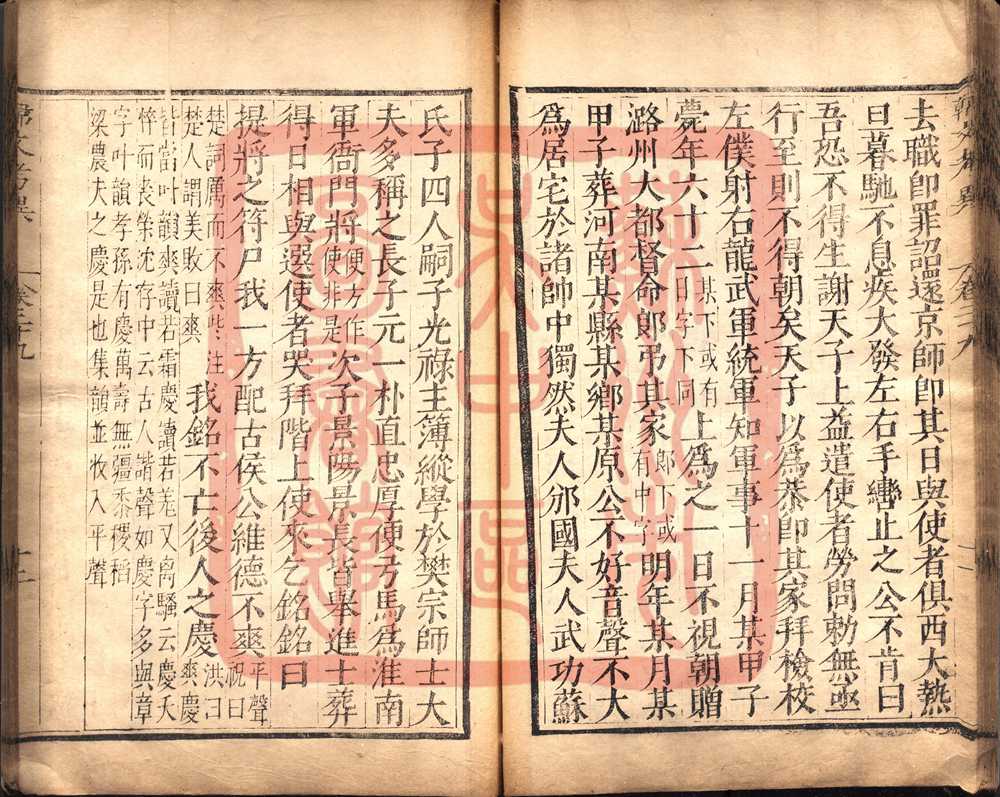 去職即罪詔還京師即其日與使者俱西大熱
旦暮馳不息疾大發左右手轡止之公不肯曰
吾恐不得生謝天子上益遣使者勞問勅無亟
行至則不得朝矣天子以為恭即其家拜檢校
左僕射右龍武軍統軍知軍事十一月某甲子
薨年六十二某下或有日字下同上為之一日不視朝贈
潞州大都督命郎弔其家郎下或有中字明年某月某
甲子葬河南某縣某鄉某原公不好音聲不大
為居宅於諸帥中獨然夫人邠國夫人武功蘇
氏子四人嗣子光祿主簿縱學於樊宗師士大
夫多稱之長子元一朴直忠厚便弓馬為淮南
軍衙門將便方作使非是次子景陽景長皆舉進士葬
得日相與遷使者哭拜階上使來乞銘銘曰
提將之符尸我一方配古侯公維德不爽平聲祝曰
楚詞厲而不爽些注楚人謂羙敗曰爽我銘不亡後人之慶洪曰爽慶
皆當叶韻爽讀若霜慶讀若羌又离騷云慶夭
悴而喪榮沈存中云古人諧聲如慶字多與章
字叶韻孝孫有慶萬壽無疆黍稷稻
梁農夫之慶是也集韻並收入平聲